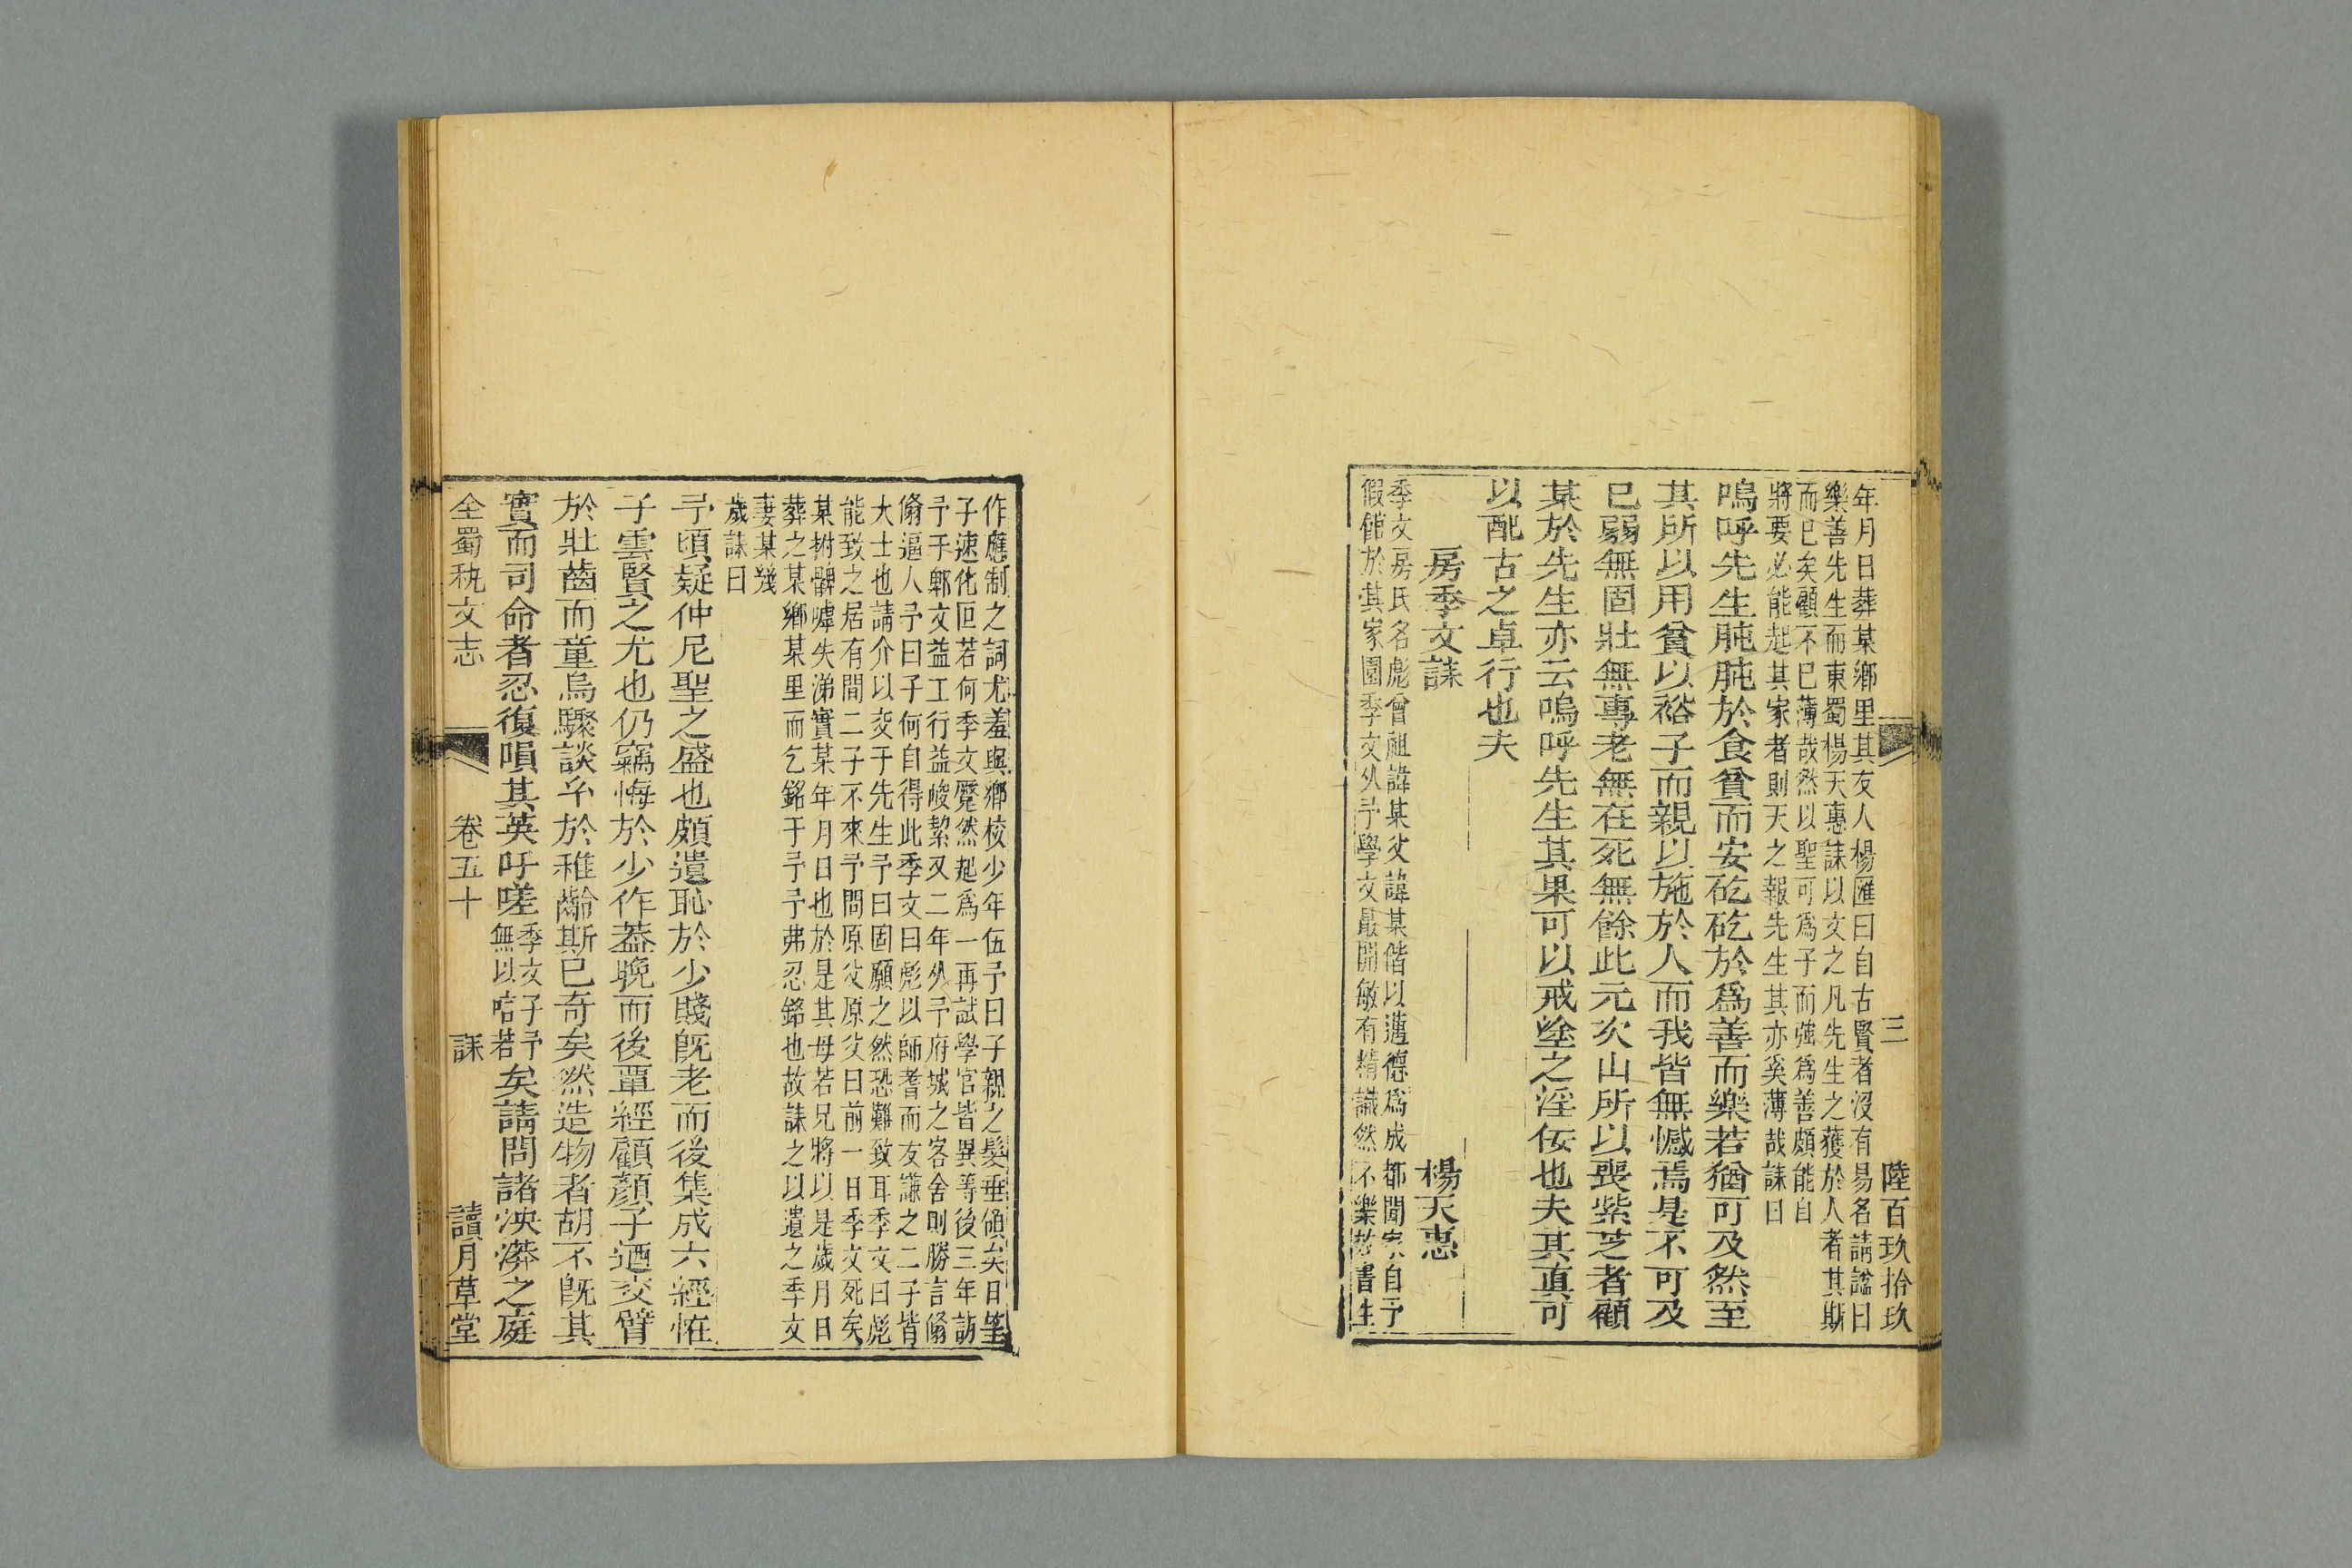 三　陸百玖拾玖
年月日葬某鄉里其友人楊匯曰自古賢者沒有易名請諡曰
樂善先生而東蜀楊天惠誄以文之凡先生之獲於人者其斯
而已矣顧不已薄哉然以聖可爲子而強爲善頗能自
將要必能起其家者則天之報先生其亦奚薄哉誄曰
嗚呼先生肫肫於食貧而安矻矻於爲善而樂若猶可及然至
其所以用貧以裕子而親以施於人而我皆無憾焉是不可及
已弱無固壯無專老無在死無餘此元次山所以喪紫芝者顧
某於先生亦云嗚呼先生其果可以戒塗之淫佞也夫其眞可
以配古之卓行也夫
房季文誄　楊天惠
季文房氏名彪曾祖諱某父諱某偕以邁德爲成都聞家自予
假館於其家園季文从予學文最開敏有精識然不樂故書生
作應制之詞尤羞與鄉校少年伍予曰子親之髮垂領矣日望
子速化叵若何季文蹷然起爲一再試學官皆異等後三年訪
予于郫文益工行益峻絜又二年从予府城之客舍則勝言脩
脩逼人予曰子何自得此季文曰彪以師耆而友謙之二子皆
大士也請介以交于先生予曰固願之然恐難致耳季文曰彪
能致之居有間二子不來予問原父原父曰前一日季文死矣
某拊髀嘑失涕實某年月日也於是其母若兄將以是歲月日
葬之某鄉某里而乞銘于予予弗忍銘也故誄之以遺之季文
妻某幾
歲誄曰
予頃疑仲尼聖之盛也頗遺恥於少賤旣老而後集成六經恠
子雲賢之尤也仍竊悔於少作葢晚而後覃經顧顏子迺交臂
於壯齒而童烏驟談𠫤於稚齡斯已奇矣然造物者胡不旣其
實而司命者忍復隕其英吁嗟季文子予無以咭若矣請問諸泱漭之庭
全蜀秇文志　卷五十　誄　讀月草堂